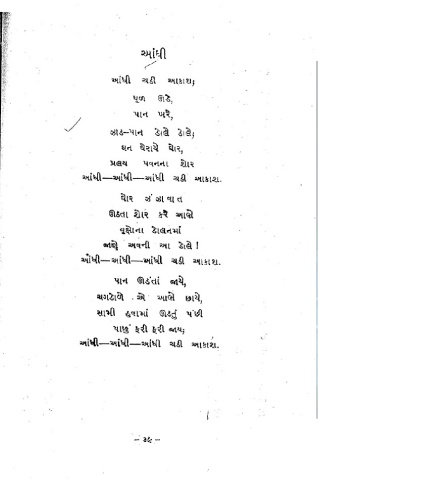 આંધી
આંધી ચઢી આકાશ;
ધૂળ ઊડે,
પાન ખરે,
ઝાડ-પાન ડોલે ડોલે;
ઘન ઘેરાયે ઘોર,
પ્રલય પવનના શોર
આંધી—આંધી—આંધી ચઢી આકાશ.
ઘોર ઝંઝાવાત
ઊઠતા શોર કરે આભે
વૃક્ષોના ડોલનમાં
જાણે અવની આ ડોલે!
આંધી—આંધી—આંધી ચઢી આકાશ.
પાન ઊડતાં જાયે,
ચગડોળે એ આભે છાયે,
સામી હવામાં ઊડતું પંછી
પાછું ફરી ફરી જાય;
આંધી—આંધી—આંધી ચઢી આકાશ.
- ૩૯ -